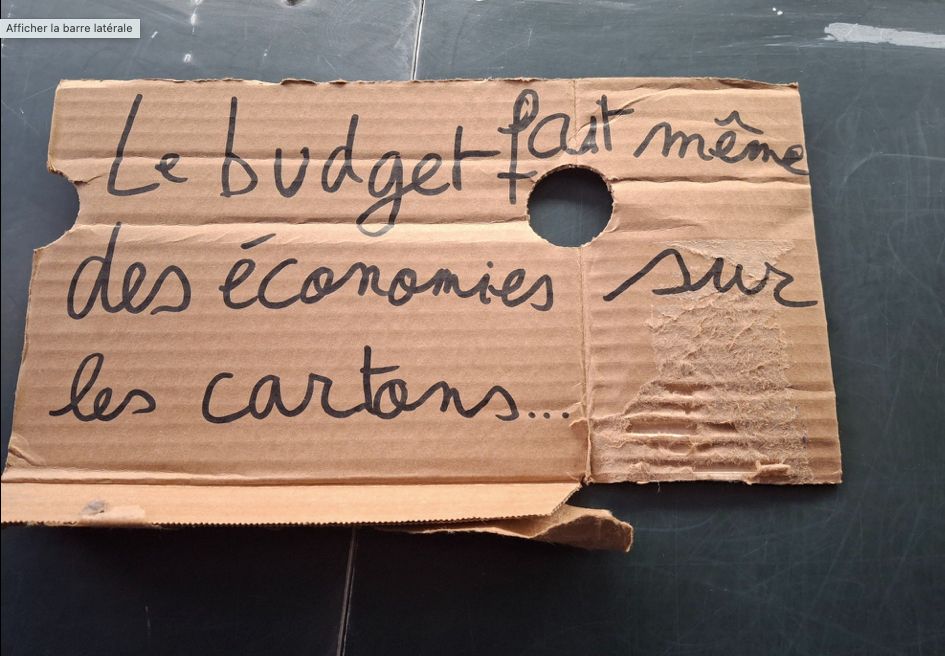 Afficher la barre latérale
Le budget fait même
des économies sur
les cartons...